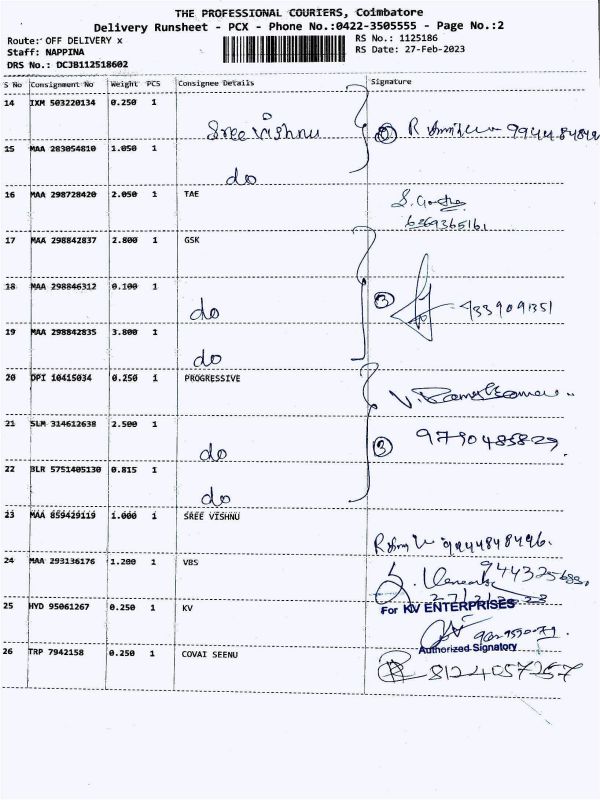 THE PROFESSIONAL COURIERS, Coimbatore
Delivery Runsheet - PCX - Phone No.:0422-3505555 - Page No.:2
Route: OFF DELIVERY x
RS No.: 1125186
Staff: NAPPINA
RS Date: 27-Feb-2023
DRS No.: DCJB112518602
S No Consignment No Weight PCS Consignee Details Signature
14 IXM 503220134 0.250 1 Sree Vishnu
15 MAA 283054810 1.050 1 do
16 MAA 298728420 2.050 1 TAE
6369365161
17 MAA 298842837 2.800 1 GSK
18 MAA 298846312 0.100 1 do
③
19 MAA 298842835 3.800 1 do
20 DPI 10415034 0.250 1 PROGRESSIVE
21 SLM 314612638 2.500 1 do
③ 9790485829
22 BLR 5751405130 0.815 1 do
23 MAA 859429119 1.000 1 SREE VISHNU
9944848496
24 MAA 293136176 1.200 1 VBS
25 HYD 95061267 0.250 1 KV
For KV ENTERPRISES
Authorized Signatory
26 TRP 7942158 0.250 1 COVAI SEENU
8124057257